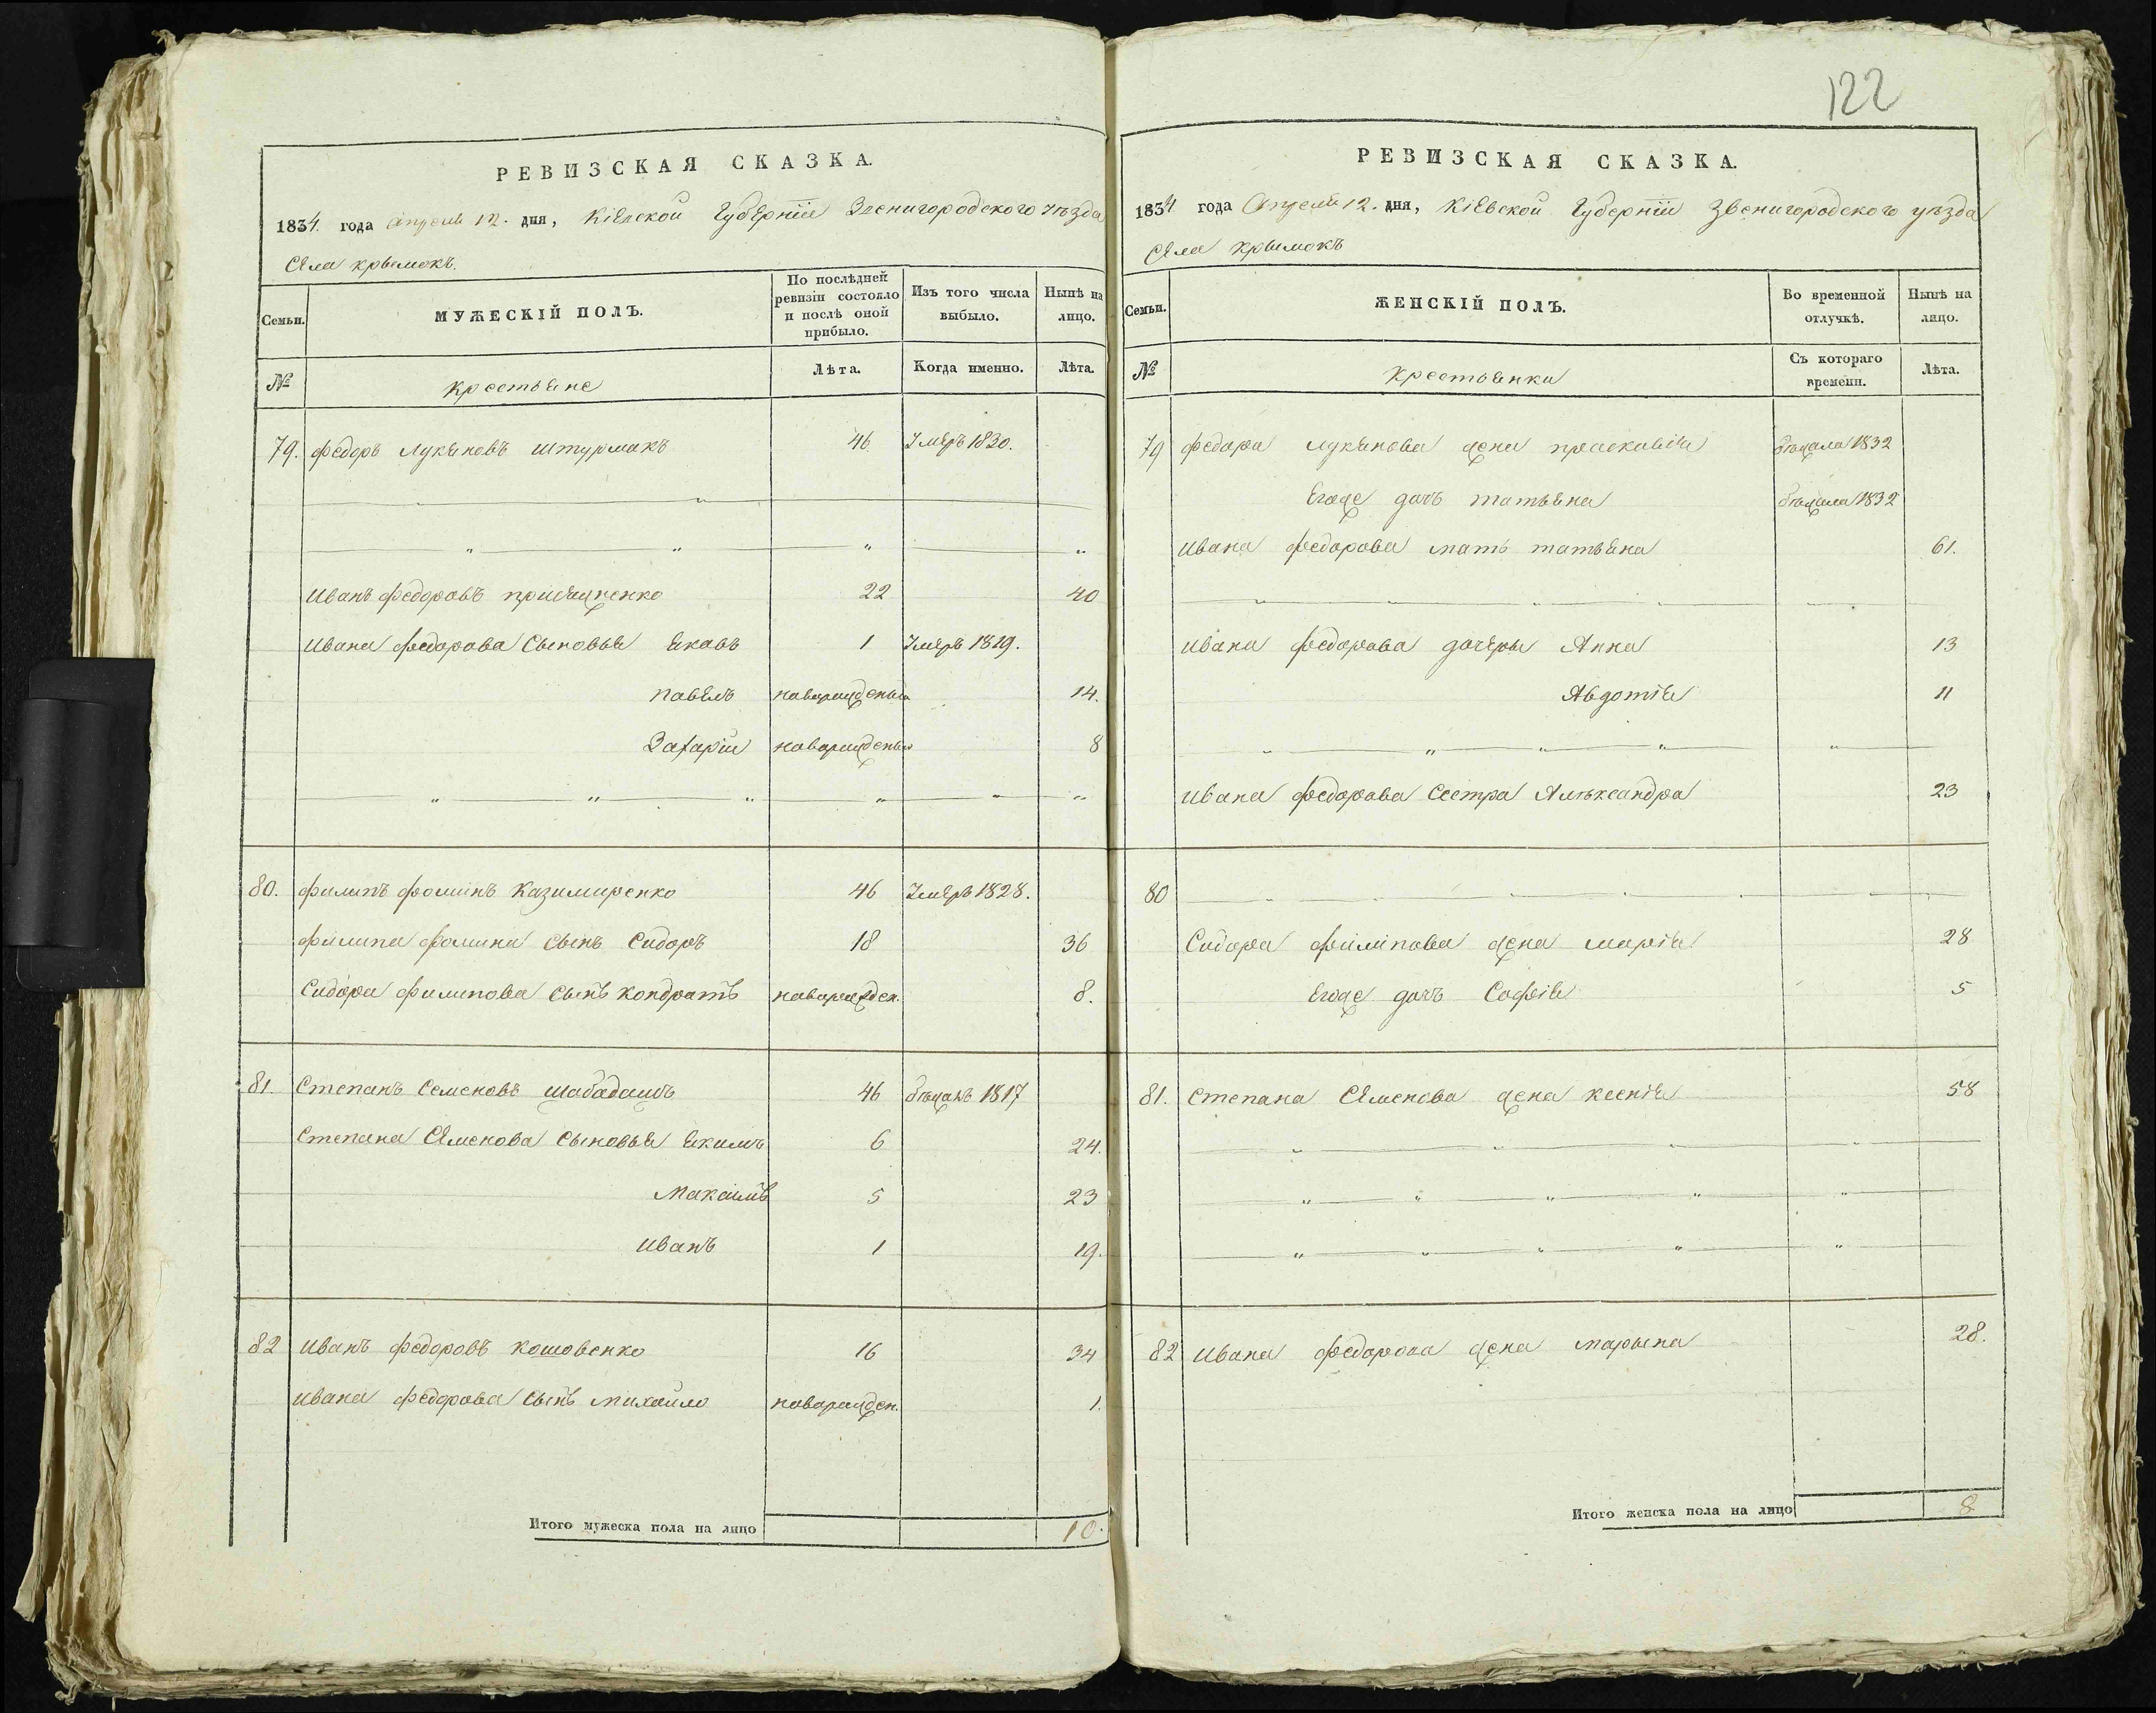 122
РЕВИЗСКАЯ СКАЗКА.
1834 года Апреля 12. дня, Кіевской Губерніи Звенигородского уезда
Села Крымокъ.
Семьи.
МУЖЕСКІЙ ПОЛЪ.
По послѣдней ревизіи состояло и послѣ оной прибыло.
Изъ того числа выбыло.
Нынѣ на лицо.
№
Крестьяне
Лѣта.
Когда именно.
Лѣта.
79. Федоръ Лукяновъ Штурмакъ 46 Умеръ 1830.
Иванъ Федоровъ 22 40
Ивана Федорова Сыновья Яковъ 1 Умеръ 1819.
Павелъ новорожденый 14.
Захарій новорожденый 8
80. Филипъ Фоминъ Казимиренко 46 Умеръ 1828.
Филипа Фомина сынъ Сидоръ 18 36
Сидора Филипова сынъ Кондратъ новорожден. 8.
81. Степанъ Семеновъ Шабадашъ 46 бежалъ 1817
Степана Семенова Сыновья Якимъ 6 24.
Максимъ 5 23
Иванъ 1 19.
82 Иванъ Федоровъ Кошовенко 16 34
Ивана Федорова сынъ Михайло новорожден. 1.
Итого мужеска пола на лицо 10.
РЕВИЗСКАЯ СКАЗКА.
1834 года Апреля 12. дня, Кіевской Губерніи Звенигородского уезда
Села Крымокъ
Семьи.
ЖЕНСКІЙ ПОЛЪ.
Во временной отлучкѣ.
Нынѣ на лицо.
№
Крестьянки
Съ котораго времени.
Лѣта.
79 Федора Лукянова жена Прасковія бежала 1832
Егоже дочъ Татьяна бежала 1832
Ивана Федорова мать Татьяна 61.
Ивана Федорова дочери Анна 13
Авдотія 11
Ивана Федорова сестра Алѣксандра 23
80
Сидора Филипова жена Марія 28
Егоже дочъ Софія 5
81. Степана Семенова жена Ксенія 58
82 Ивана Федорова жена Марына 28.
Итого женска пола на лицо 8